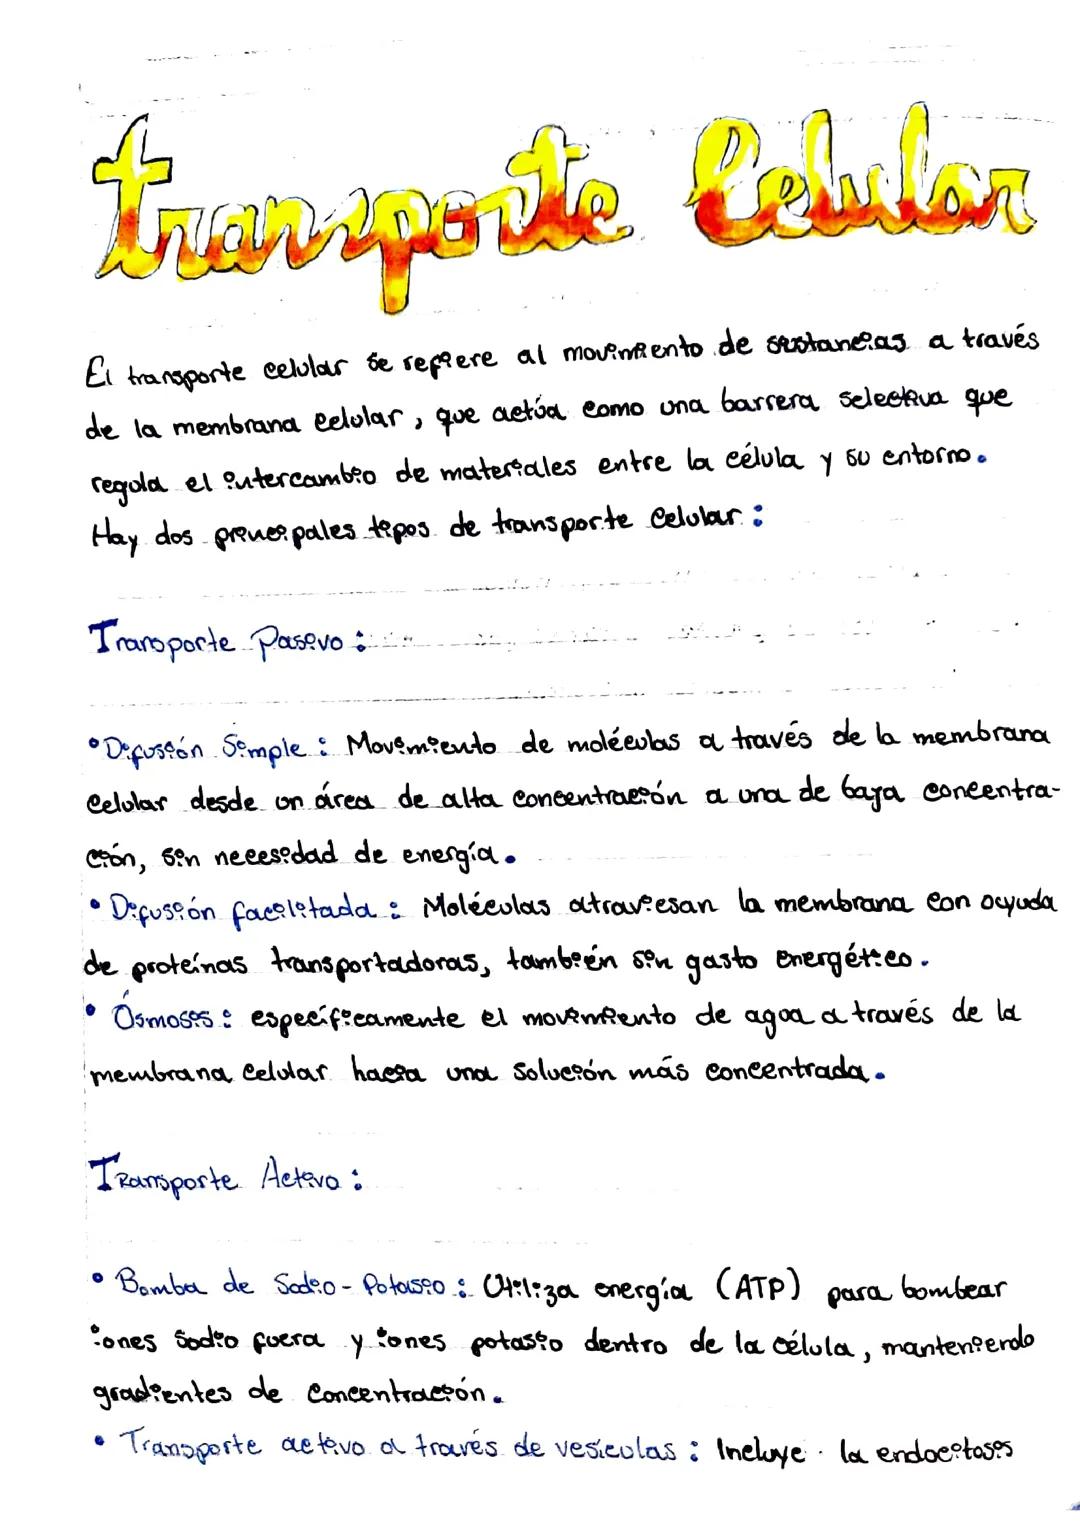 transporte Celular
El transporte celular se refiere al movimiento de sustancias a través
de la membrana celular, que actúa como una barrera selectiva que
regula el intercambio de materiales entre la célula y su entorno.
Hay dos principales tipos de transporte Celular:
Transporte Pasivo:
• Difusión Simple: Movimiento de moléculas a través de la membrana
celular desde un área de alta concentración a una de baja concentra-
ción, sin necesidad de energía.
• Difusión facilitada: Moléculas atraviesan la membrana con ayuda
de proteínas transportadoras, también sin gasto energético.
• Ósmosis: específicamente el movimiento de agua a través de la
membrana celular hacia una solución más concentrada.
Transporte Activo:
• Bomba de Sodio-Potasio: Utiliza energía (ATP) para bombear
iones sodio fuera y iones potasio dentro de la célula, manteniendo
gradientes de concentración.
• Transporte activo a través de vesículas: Incluye la endocitosis